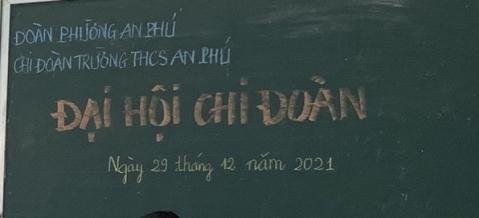 ĐOÀN PHƯỜNG AN PHÚ
CHI ĐOÀN TRƯỜNG THCS AN PHÚ
ĐẠI HỘI CHI ĐOÀN
Ngày 29 tháng 12 năm 2021